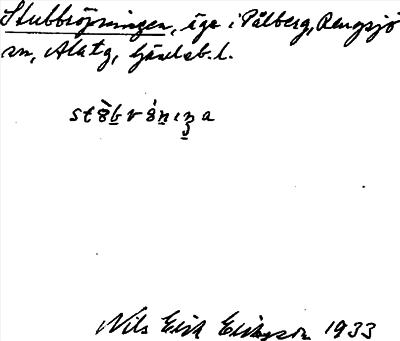 Stubbröjningen, äga i Pålberg, Rengsjö
sn, Alatg, Gävleb. l.
Nils Erik Eriksson 1933